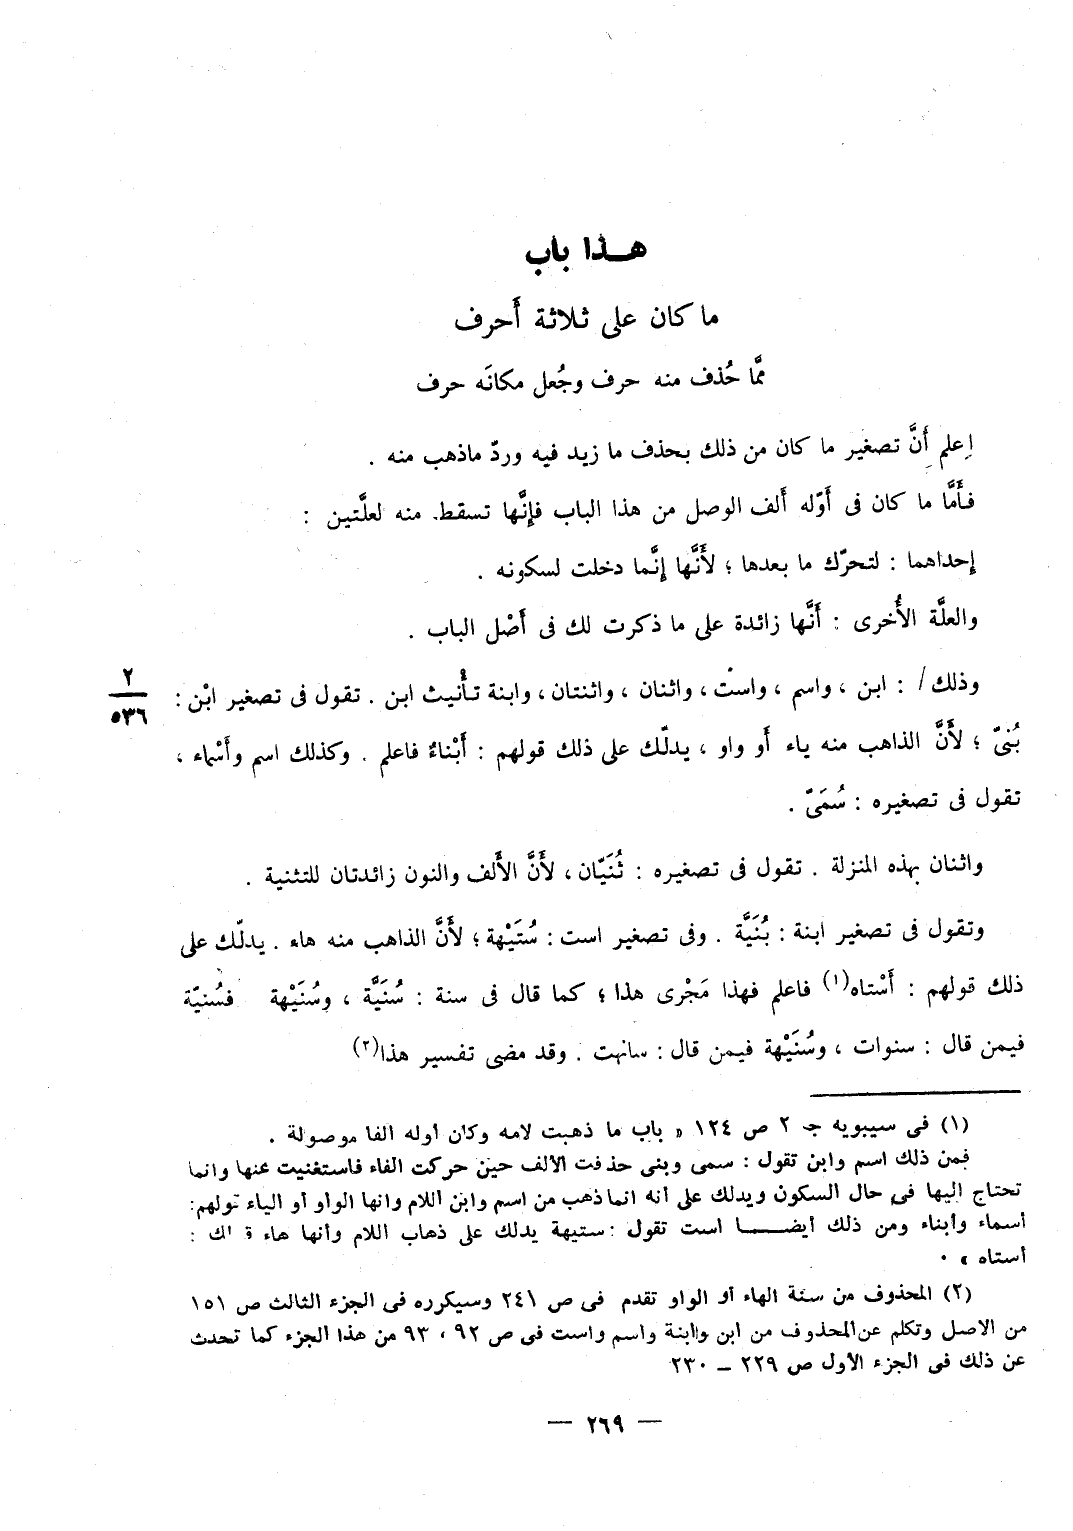 هـــذا باب
ما كان على ثلاثة أَحرف
ممَّا حُذف منه حرف وجُعل مكانَه حرف
اِعلم أَنَّ تصغير ما كان من ذلك بحذف ما زيد فيه وردّ ماذهب منه .
فأَمَّا ما كان فى أَوّله أَلف الوصل من هذا الباب فإنَّها تسقط منه لعلَّتين :
إحداهما : لتحرّك ما بعدها ؛ لأَنَّها إنَّما دخلت لسكونه .
والعلَّة الأُخرى : أَنَّها زائدة على ما ذكرت لك فى أَصْل الباب .
وذلك / : ابن ، واسم ، واست ، واثنان ، واثنتان ، وابنة تأْنيث ابن . تقول فى تصغير ابْن :
٢
٥٣٦
بُنىّ ؛ لأَنَّ الذاهب منه ياء أَو واو ، يدلّك على ذلك قولهم : أَبْناءٌ فاعلم . وكذلك اسم وأَسْماء ،
تقول فى تصغيره : سُمَىّ .
واثنان بهذه المنزلة . تقول فى تصغيره : ثُنَيّان ، لأَنَّ الأَلف والنون زائدتان للتثنية .
وتقول فى تصغير ابنة : بُنَيَّة . وفى تصغير است : سُتَيْهة ؛ لأَنَّ الذاهب منه هاء . يدلّك على
ذلك قولهم : أَسْتاه(١) فاعلم فهذا مَجْرى هذا ؛ كما قال فى سنة : سُنَيَّة ، وسُنَيْهة فسُنيّة
فيمن قال : سنوات ، وسُنَيْهة فيمن قال : سانهت . وقد مضى تفسير هذا(٢)
(١) فى سيبويه جـ ٢ ص ١٢٤ « باب ما ذهبت لامه وكان أوله الفا موصولة .
فمن ذلك اسم وابن تقول : سمى وبنى حذفت الألف حين حركت الفاء فاستغنيت عنها وانما
تحتاج اليها فى حال السكون ويدلك على أنه انما ذهب من اسم وابن اللام وانها الواو أو الياء قولهم:
أسماء وأبناء ومن ذلك أيضـــا است تقول : ستيهة يدلك على ذهاب اللام وأنها هاء :
أستاه » .
(٢) المحذوف من سنة الهاء أو الواو تقدم فى ص ٢٤١ وسيكرره فى الجزء الثالث ص ١٥١
من الاصل وتكلم عن المحذوف من ابن وابنة واسم واست فى ص ٩٢ ، ٩٣ من هذا الجزء كما تحدث
عن ذلك فى الجزء الأول ص ٢٢٩ – ٢٣٠
— ٢٦٩ —